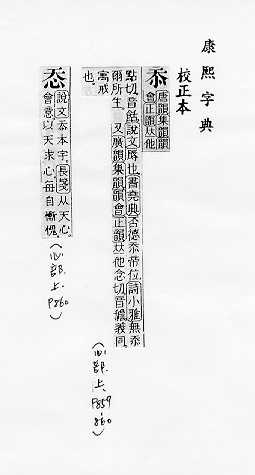 康熙字典
校正本
忝
唐韻集韻韻
會正韻𠀤他
點切音餂說文辱也書堯典否德忝帝位詩小雅無忝
爾所生 又廣韻集韻韻會正韻𠀤他念切音㮇義同
寓戒
也
(心部.上.P859-860)
悿
說文忝本字長箋从天心
會意以天求心每自慚愧
(心部.上.P860)